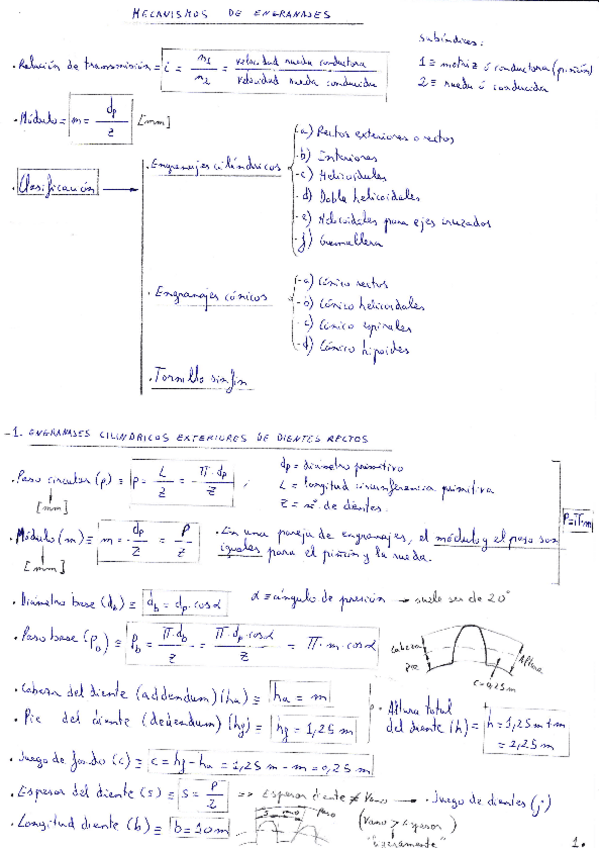 MECANISMOS DE ENGRANAJES
subíndices:
1 ≡ motriz ó conductora (piñón)
2 ≡ rueda ó conducida
. Relación de transmisión = i = n1/n2 = velocidad rueda conductora / velocidad rueda conducida
. Módulo = m = dp/z [mm]
. Clasificación
. Engranajes cilíndricos
-a) Rectos exteriores o rectos
-b) Interiores
-c) Helicoidales
-d) Doble helicoidales
-e) Helicoidales para ejes cruzados
-f) Cremallera
. Engranajes cónicos
-a) Cónico rectos
-b) Cónico helicoidales
-c) Cónico espirales
-d) Cónico hipoides
. Tornillo sinfín
-1. ENGRANAJES CILINDRICOS EXTERIORES DE DIENTES RECTOS
. Paso circular (p) ≡ p = L/z = π·dp/z
[mm]
dp = diámetro primitivo
L = longitud circunferencia primitiva
z = nº de dientes.
P=π·m
. Módulo (m) ≡ m = dp/z = P/
[mm]
. En una pareja de engranajes, el módulo y el paso son
iguales para el piñón y la rueda.
. Diámetro base (db) ≡ db = dp·cosα α ≡ ángulo de presión → suele ser de 20°
. Paso base (pb) ≡ Pb = π·db/z = π·dp·cosα/z = π·m·cosα
Cabeza
Pie
Altura
c=0,25m
. Cabeza del diente (addendum) (ha) ≡ ha = m
. Pie del diente (dedendum) (hf) ≡ hf = 1,25 m
. Altura total
del diente (h) = h = 1,25m + m
= 2,25m
. Juego de fondo (c) ≡ c = hf - ha = 1,25 m - m = 0,25 m
. Espesor del diente (s) ≡ s = P/2 => Espesor diente ≠ Vano → . Juego de dientes (j)
. Longitud diente (b) ≡ b = 10 m
s
paso
(Vano > Espesor)
"
1.